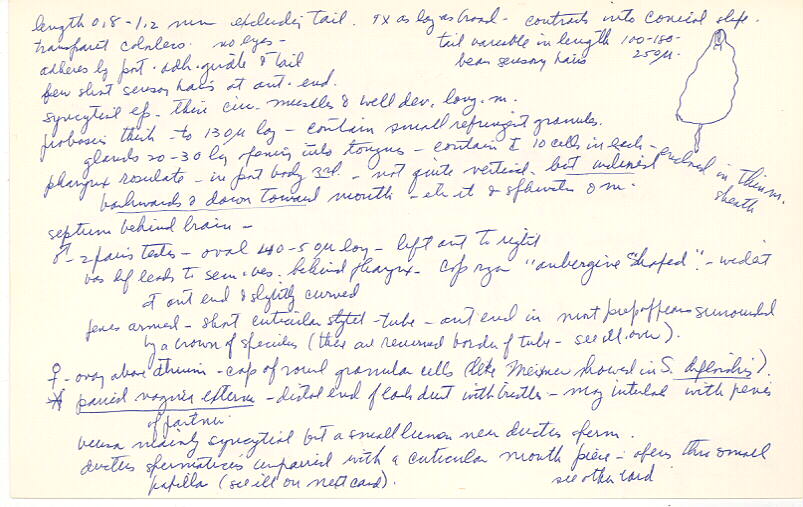 length 0.8 - 1.2 mm excluding tail. 4x as long as broad - contracts into conical shape.
transparent colorless. no eyes - tail variable in length 100-180-
adheres by post. adh. girdle & tail bear sensory hairs 250µ.
few short sensory hairs at ant. end.
syncytial ep. - thin circ. muscles & well dev. long. m.
proboscis thick - to 130µ long - contain small refringent granules.
glands 20-30 long opening into tongue - contain 10 cells in each - enclosed in thin m. sheath
pharynx rosulate - in post body 3rd - not quite vertical - but inclined
backwards & down toward mouth - sphincter m.
septum behind brain -
♂ - 2 pairs testes - oval 40-50µ long - left ant to right
vas def leads to sem. ves. behind pharynx - cop organ "aubergine shaped" - widest
at ant end & slightly curved
penes armed - short cuticular stylet - tube - ant end in most prep appears surrounded
by a crown of spicules (these are recurved border of tube - see ill. over).
♀ - ovary above atrium - cap of round granular cells (like Meixner showed in S.
* paired vagina externa - distal end of each duct with bristles - may interlock with penes
of partner
bursa mainly syncytial but a small lumen near ductus sperm.
ductus spermaticus unpaired with a cuticular mouth piece - opens thru small
papilla (see ill on next card). see other card